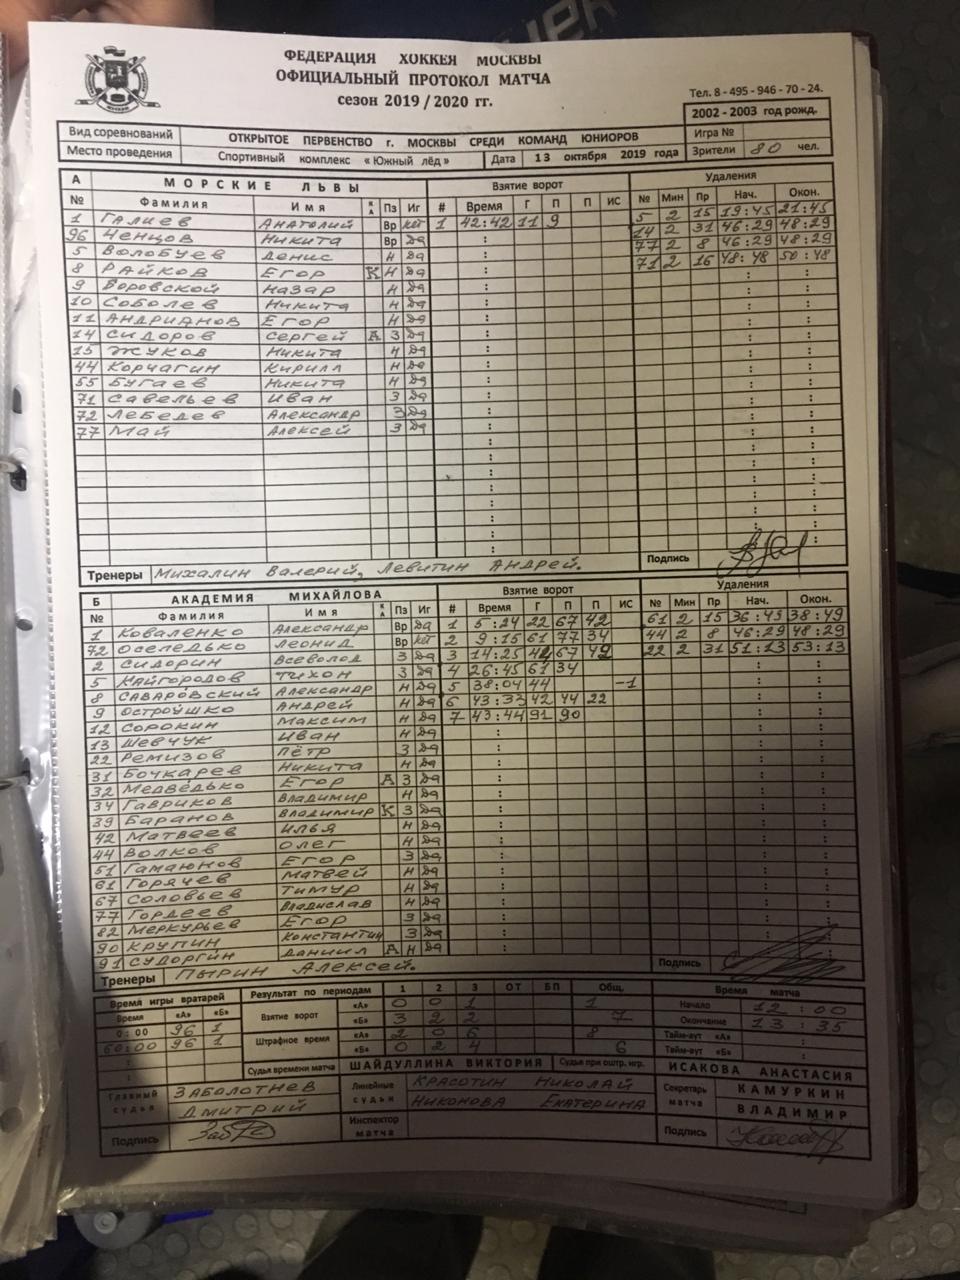 ФЕДЕРАЦИЯ ХОККЕЯ МОСКВЫ
ОФИЦИАЛЬНЫЙ ПРОТОКОЛ МАТЧА
сезон 2019 / 2020 гг.
Тел. 8 - 495 - 946 - 70 - 24.
2002 - 2003 год рожд.
Вид соревнований ОТКРЫТОЕ ПЕРВЕНСТВО г. МОСКВЫ СРЕДИ КОМАНД ЮНИОРОВ Игра №
Место проведения Спортивный комплекс « Южный лёд » Дата 13 октября 2019 года Зрители 80 чел.
А МОРСКИЕ ЛЬВЫ Взятие ворот Удаления
№ Фамилия Имя К А Пз Иг # Время Г П П ИС № Мин Пр Нач. Окон.
1 Галиев Анатолий Вр нет 1 42:42 11 9 5 2 15 19:45 21:45
96 Ченцов Никита Вр Да 14 2 31 46:29 48:29
5 Волобуев Денис Н Да 77 2 8 46:29 48:29
8 Райков Егор К Н Да 71 2 16 48:48 50:48
9 Воровской Назар Н Да
10 Соболев Никита Н Да
11 Андрианов Егор Н Да
14 Сидоров Сергей А З Да
15 Жуков Никита Н Да
44 Корчагин Кирилл Н Да
55 Бугаев Никита Н Да
71 Савельев Иван З Да
72 Лебедев Александр З Да
77 Май Алексей З Да
Тренеры Михалин Валерий, Левитин Андрей. Подпись
Б АКАДЕМИЯ МИХАЙЛОВА Взятие ворот Удаления
№ Фамилия Имя К А Пз Иг # Время Г П П ИС № Мин Пр Нач. Окон.
1 Коваленко Александр Вр Да 1 5:24 22 67 42 61 2 15 36:49 38:49
72 Оселедько Леонид Вр нет 2 9:15 61 77 34 44 2 8 46:29 48:29
2 Сидорин Всеволод З Да 3 14:25 42 67 49 22 2 31 51:13 53:13
5 Кайгородов Тихон З Да 4 26:45 61 34
8 Саваровский Александр Н Да 5 38:04 44 -1
9 Остроушко Андрей Н Да 6 43:33 42 44 22
12 Сорокин Максим Н Да 7 43:44 91 90
13 Шевчук Иван Н Да
22 Ремизов Пётр З Да
31 Бочкарев Никита Н Да
32 Медведько Егор А З Да
34 Гавриков Владимир Н Да
39 Баранов Владимир К З Да
42 Матвеев Илья Н Да
44 Волков Олег Н Да
51 Гамаюнов Егор З Да
61 Горячев Матвей Н Да
67 Соловьев Тимур Н Да
77 Гордеев Владислав Н Да
82 Меркурьев Егор З Да
90 Крупин Константин З Да
91 Судоргин Даниил А Н Да
Тренеры Пырин Алексей. Подпись
Время игры вратарей Результат по периодам 1 2 3 ОТ БП Общ. Время матча
Время «А» «Б» Взятие ворот «А» 0 0 1 1 Начало 12:00
0:00 96 1 «Б» 3 2 2 7 Окончание 13:35
60:00 96 1 Штрафное время «А» 2 0 6 8 Тайм-аут «А» :
: «Б» 0 2 4 6 Тайм-аут «Б» :
Судья времени матча ШАЙДУЛЛИНА ВИКТОРИЯ Судья при оштр. игр. ИСАКОВА АНАСТАСИЯ
Главный судья Заболотнев Дмитрий Линейные судьи Красотин Николай Секретарь матча КАМУРКИН
Никонова Екатерина ВЛАДИМИР
Подпись Инспектор матча Подпись